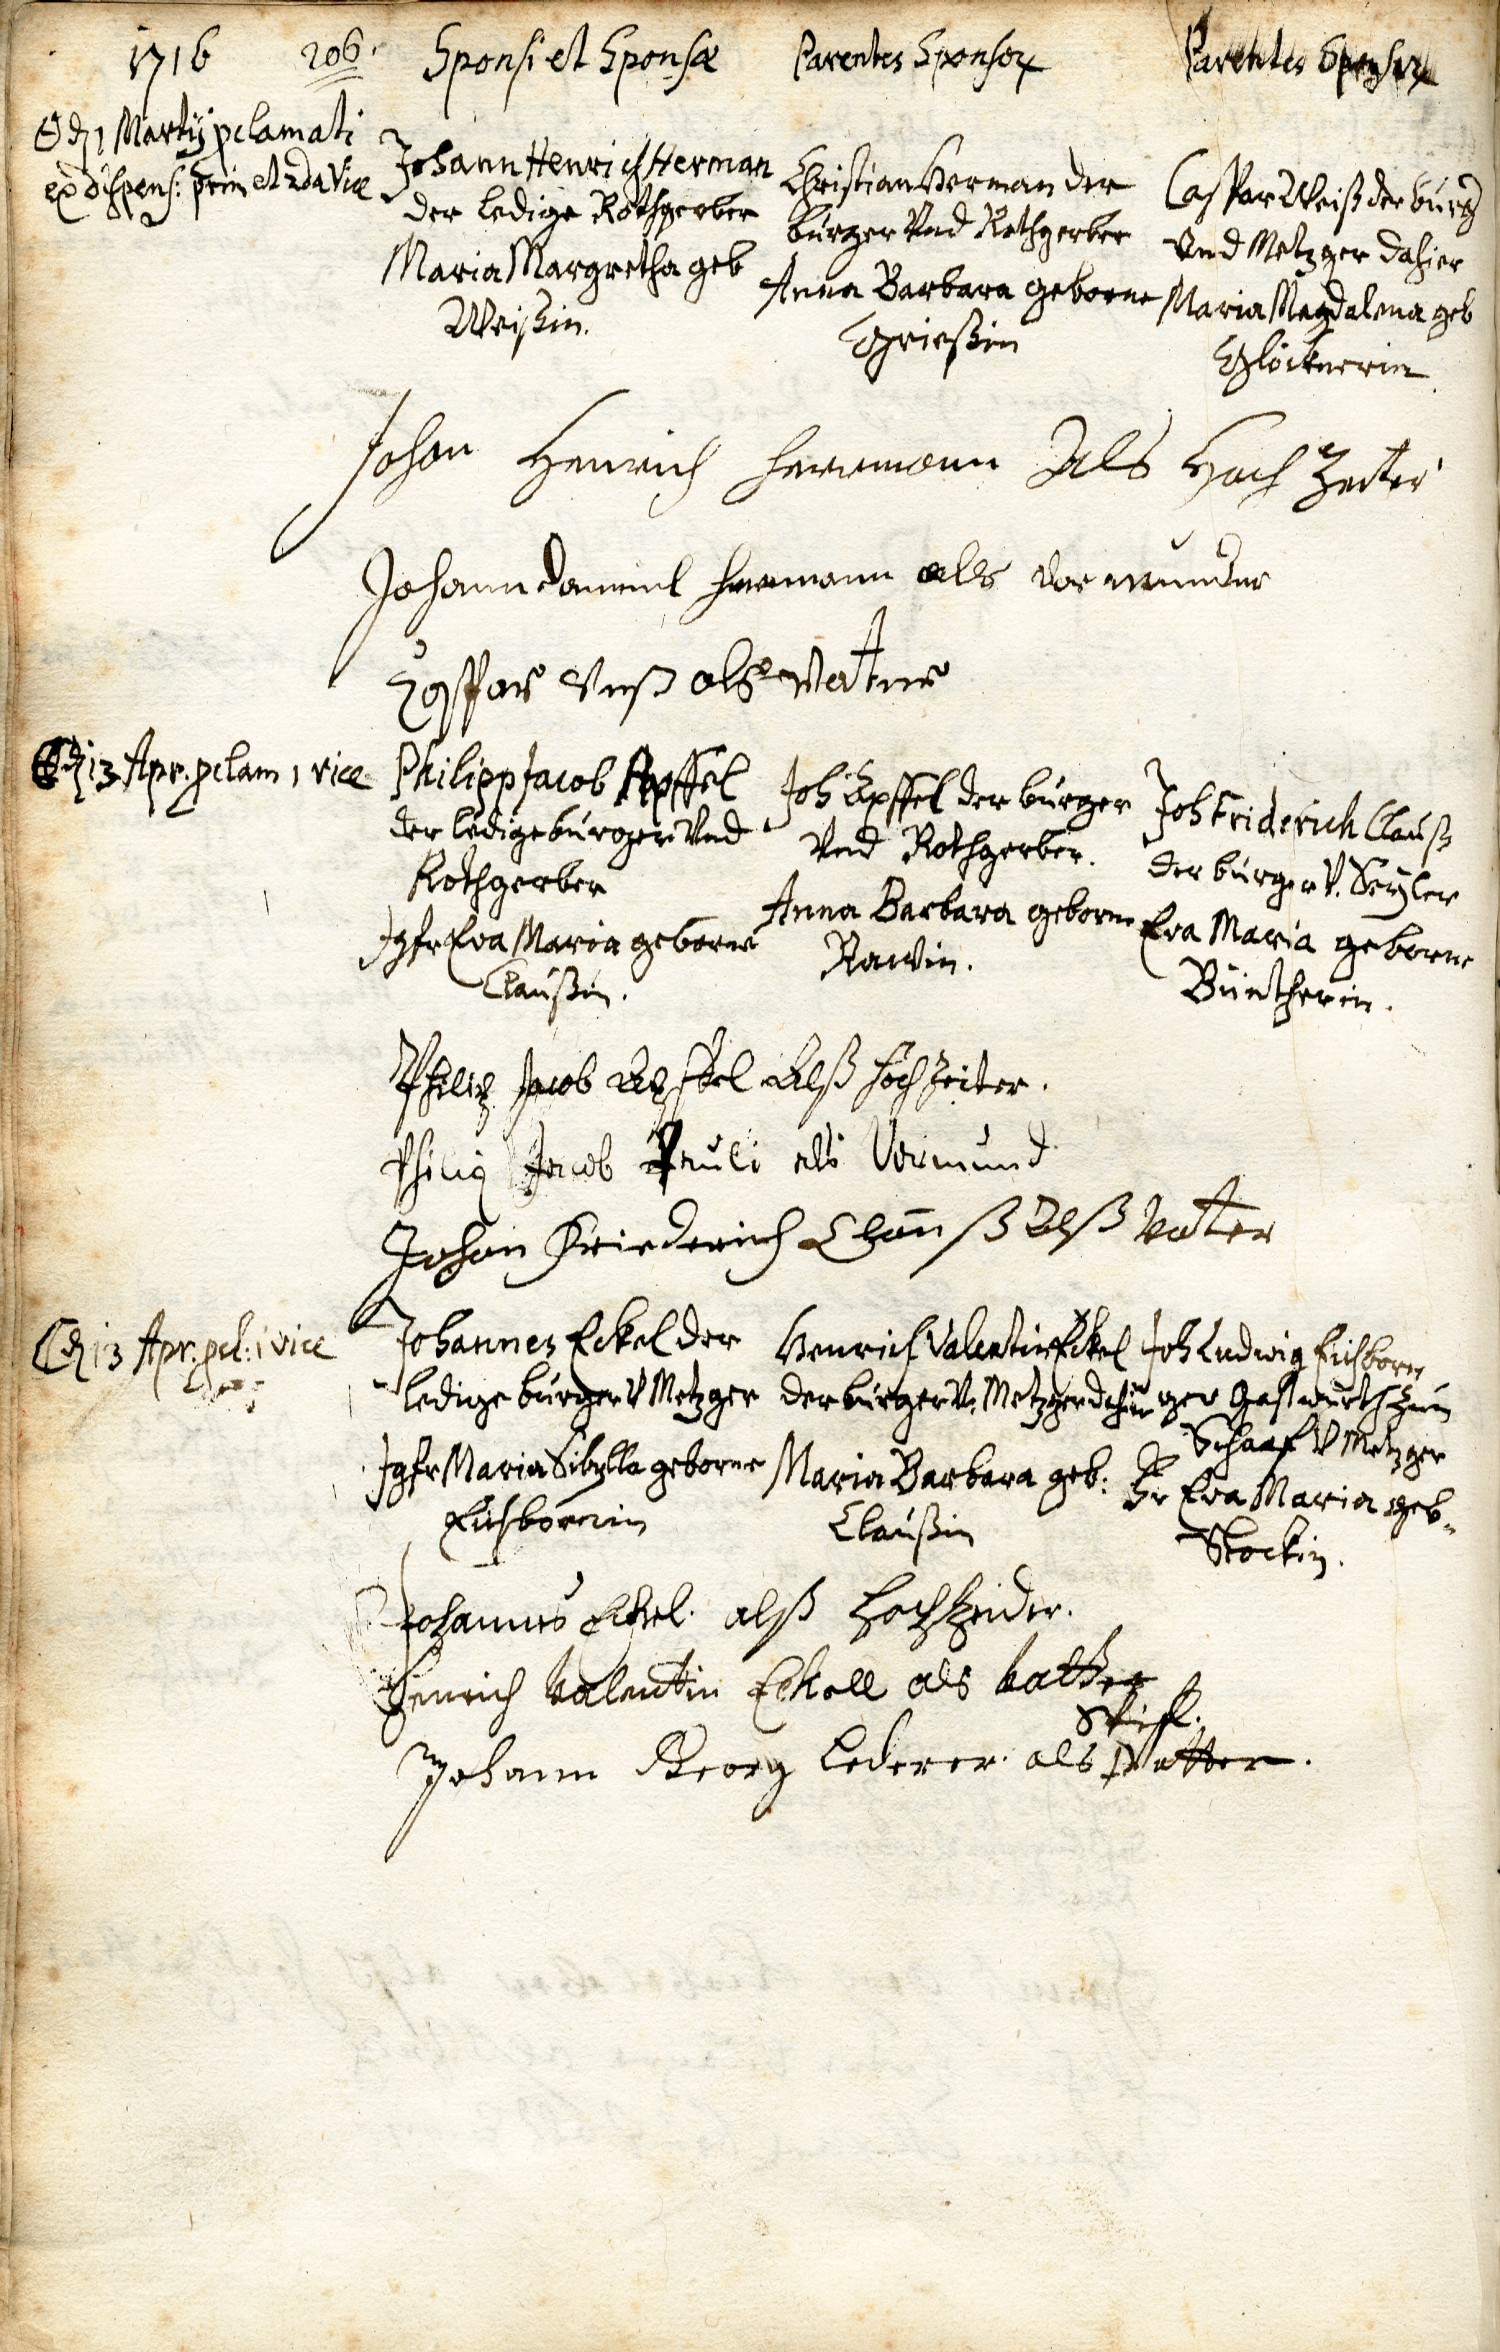 1716 206. Sponsi et Sponsæ Parentes Sponsor Parentes Sponsar
d 1 Martij pclamati
ex dispens: prim et 2da Vice
Johann Henrich Herman
der ledige Rothgerber
Maria Margretha geb
Weißin.
Christian Herman der
burger Vnd Rothgerber
Anna Barbara geborne
Grießin
Caspar Weiß der burg
Vnd Metzger dahier
Maria Magdalena geb
Glöcknerin
Johan Henrich Herrmann Als Hoch Zeiter
Johann Daniel Herrmann als vormunder
Caspar Veiß als Vatter
d 13 Apr. pclam 1 vice
Philipp Jacob Apffel
der ledige burger Vnd
Rothgerber
Jgfr Eva Maria geborne
Claußin.
Joh Apffel der burger
Vnd Rothgerber.
Anna Barbara geborne
Rawin.
Joh Friderich Clauß
der burger V. Seyler
Eva Maria geborne
Büntherin.
Philip Jacob Apffel Alß hochzeiter.
Philip Jacob Pauli als Vormund
Johan Friederich Clauß Alß Vater
d 13 Apr. pcl: 1 vice
Johannes Eckel der
ledige burger V Metzger
Jgfr Maria Sibylla geborne
Eichbornin
Henrich Valentin Eckel
der burger V. Metzger dahier
Maria Barbara geb:
Claußin
Joh Ludwig Eichborn
ger Gastwürth zum
Schaaf V Metzger
Fr Eva Maria geb.
Stockin.
Johannes Eckel. alß Hochzeider.
Henrich Valentin Eckell als batter
Stiff.
Johann Georg Lederer. als Vatter.